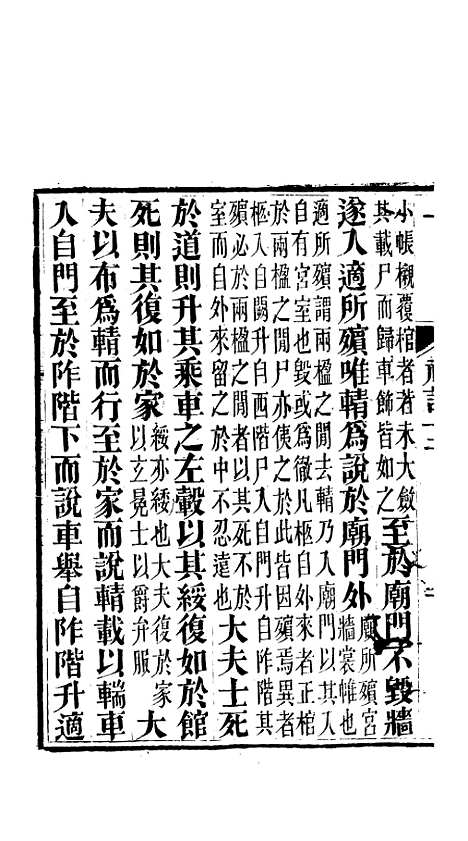 小帳櫬覆棺者若未大斂
其載尸而歸車飾皆如之
至於廟門不毀牆
遂入適所殯唯輤爲說於廟門外
廟所殯宮
牆裳帷也
適所殯謂兩楹之閒去輤乃入廟門以其入
自有宮室也毀或爲徹凡柩自外來者正棺
於兩楹之閒尸亦侇之於此皆因殯焉異者
柩入自闕升自西階尸入自門升自阼階其
殯必於兩楹之閒者以其死不於
室而自外來留之於中不忍遠也
大夫士死
於道則升其乘車之左轂以其綏復如於館
死則其復如於家
綏亦緌也大夫復於家
以玄冕士以爵弁服
大
夫以布爲輤而行至於家而說輤載以輲車
入自門至於阼階下而說車舉自阼階升適